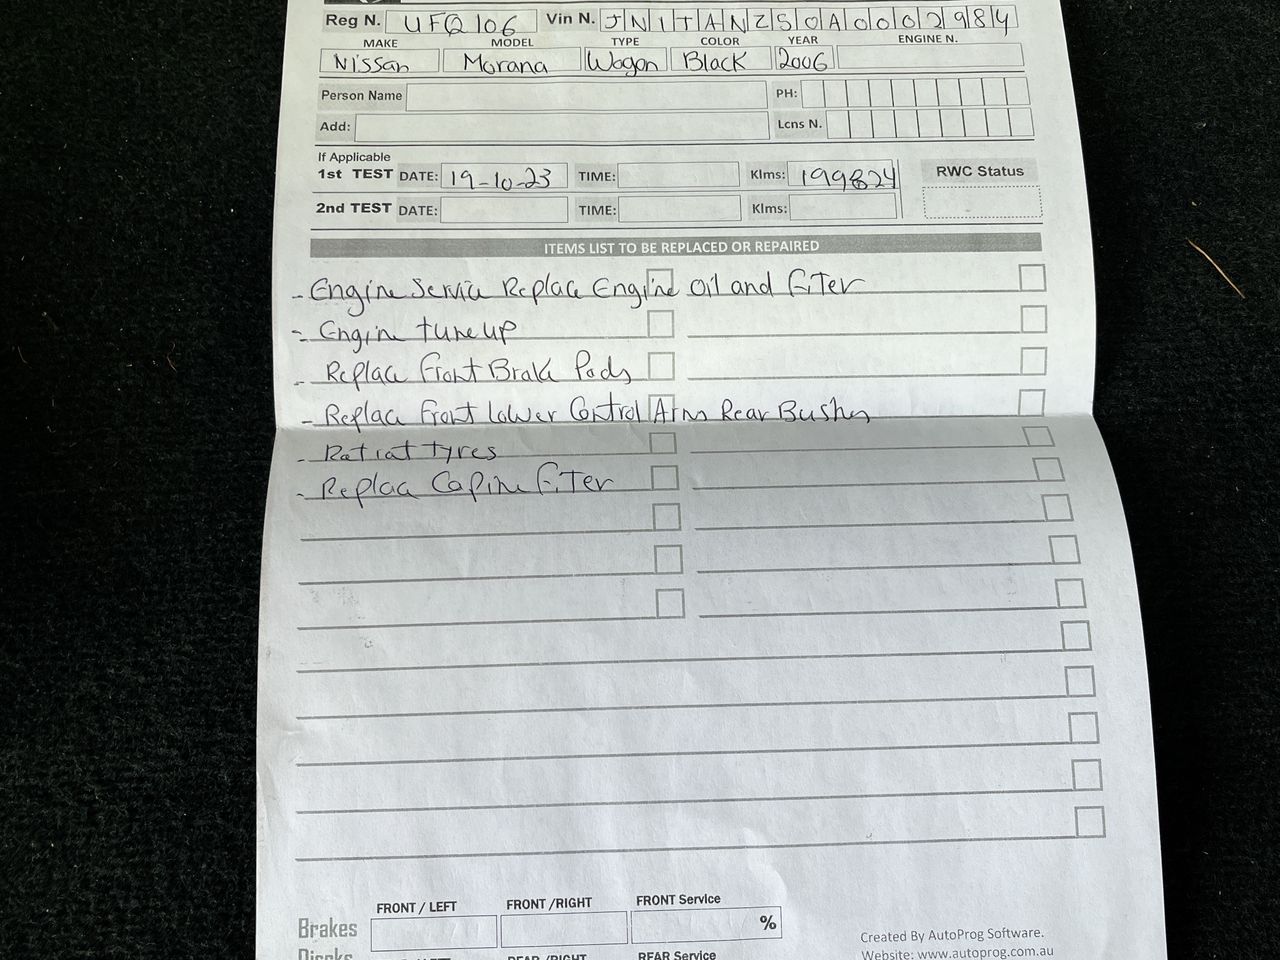 Reg N. UFQ106 Vin N. JN1TANZ50A0002984
MAKE MODEL TYPE COLOR YEAR ENGINE N.
Nissan Morana Wagon Black 2006
Person Name PH:
Add: Lcns N.
If Applicable
1st TEST DATE: 19-10-23 TIME: Klms: 199824 RWC Status
2nd TEST DATE: TIME: Klms:
ITEMS LIST TO BE REPLACED OR REPAIRED
- Engine Service Replace Engine Oil and Filter
- Engine tune up
- Replace Front Brake Pads
- Replace Front Lower Control Arm Rear Bushes
- tyres
- Replace Capine Filter
FRONT / LEFT FRONT /RIGHT FRONT Service
Brakes %
Created By AutoProg Software.
Website: www.autoprog.com.au
REAR /RIGHT REAR Service